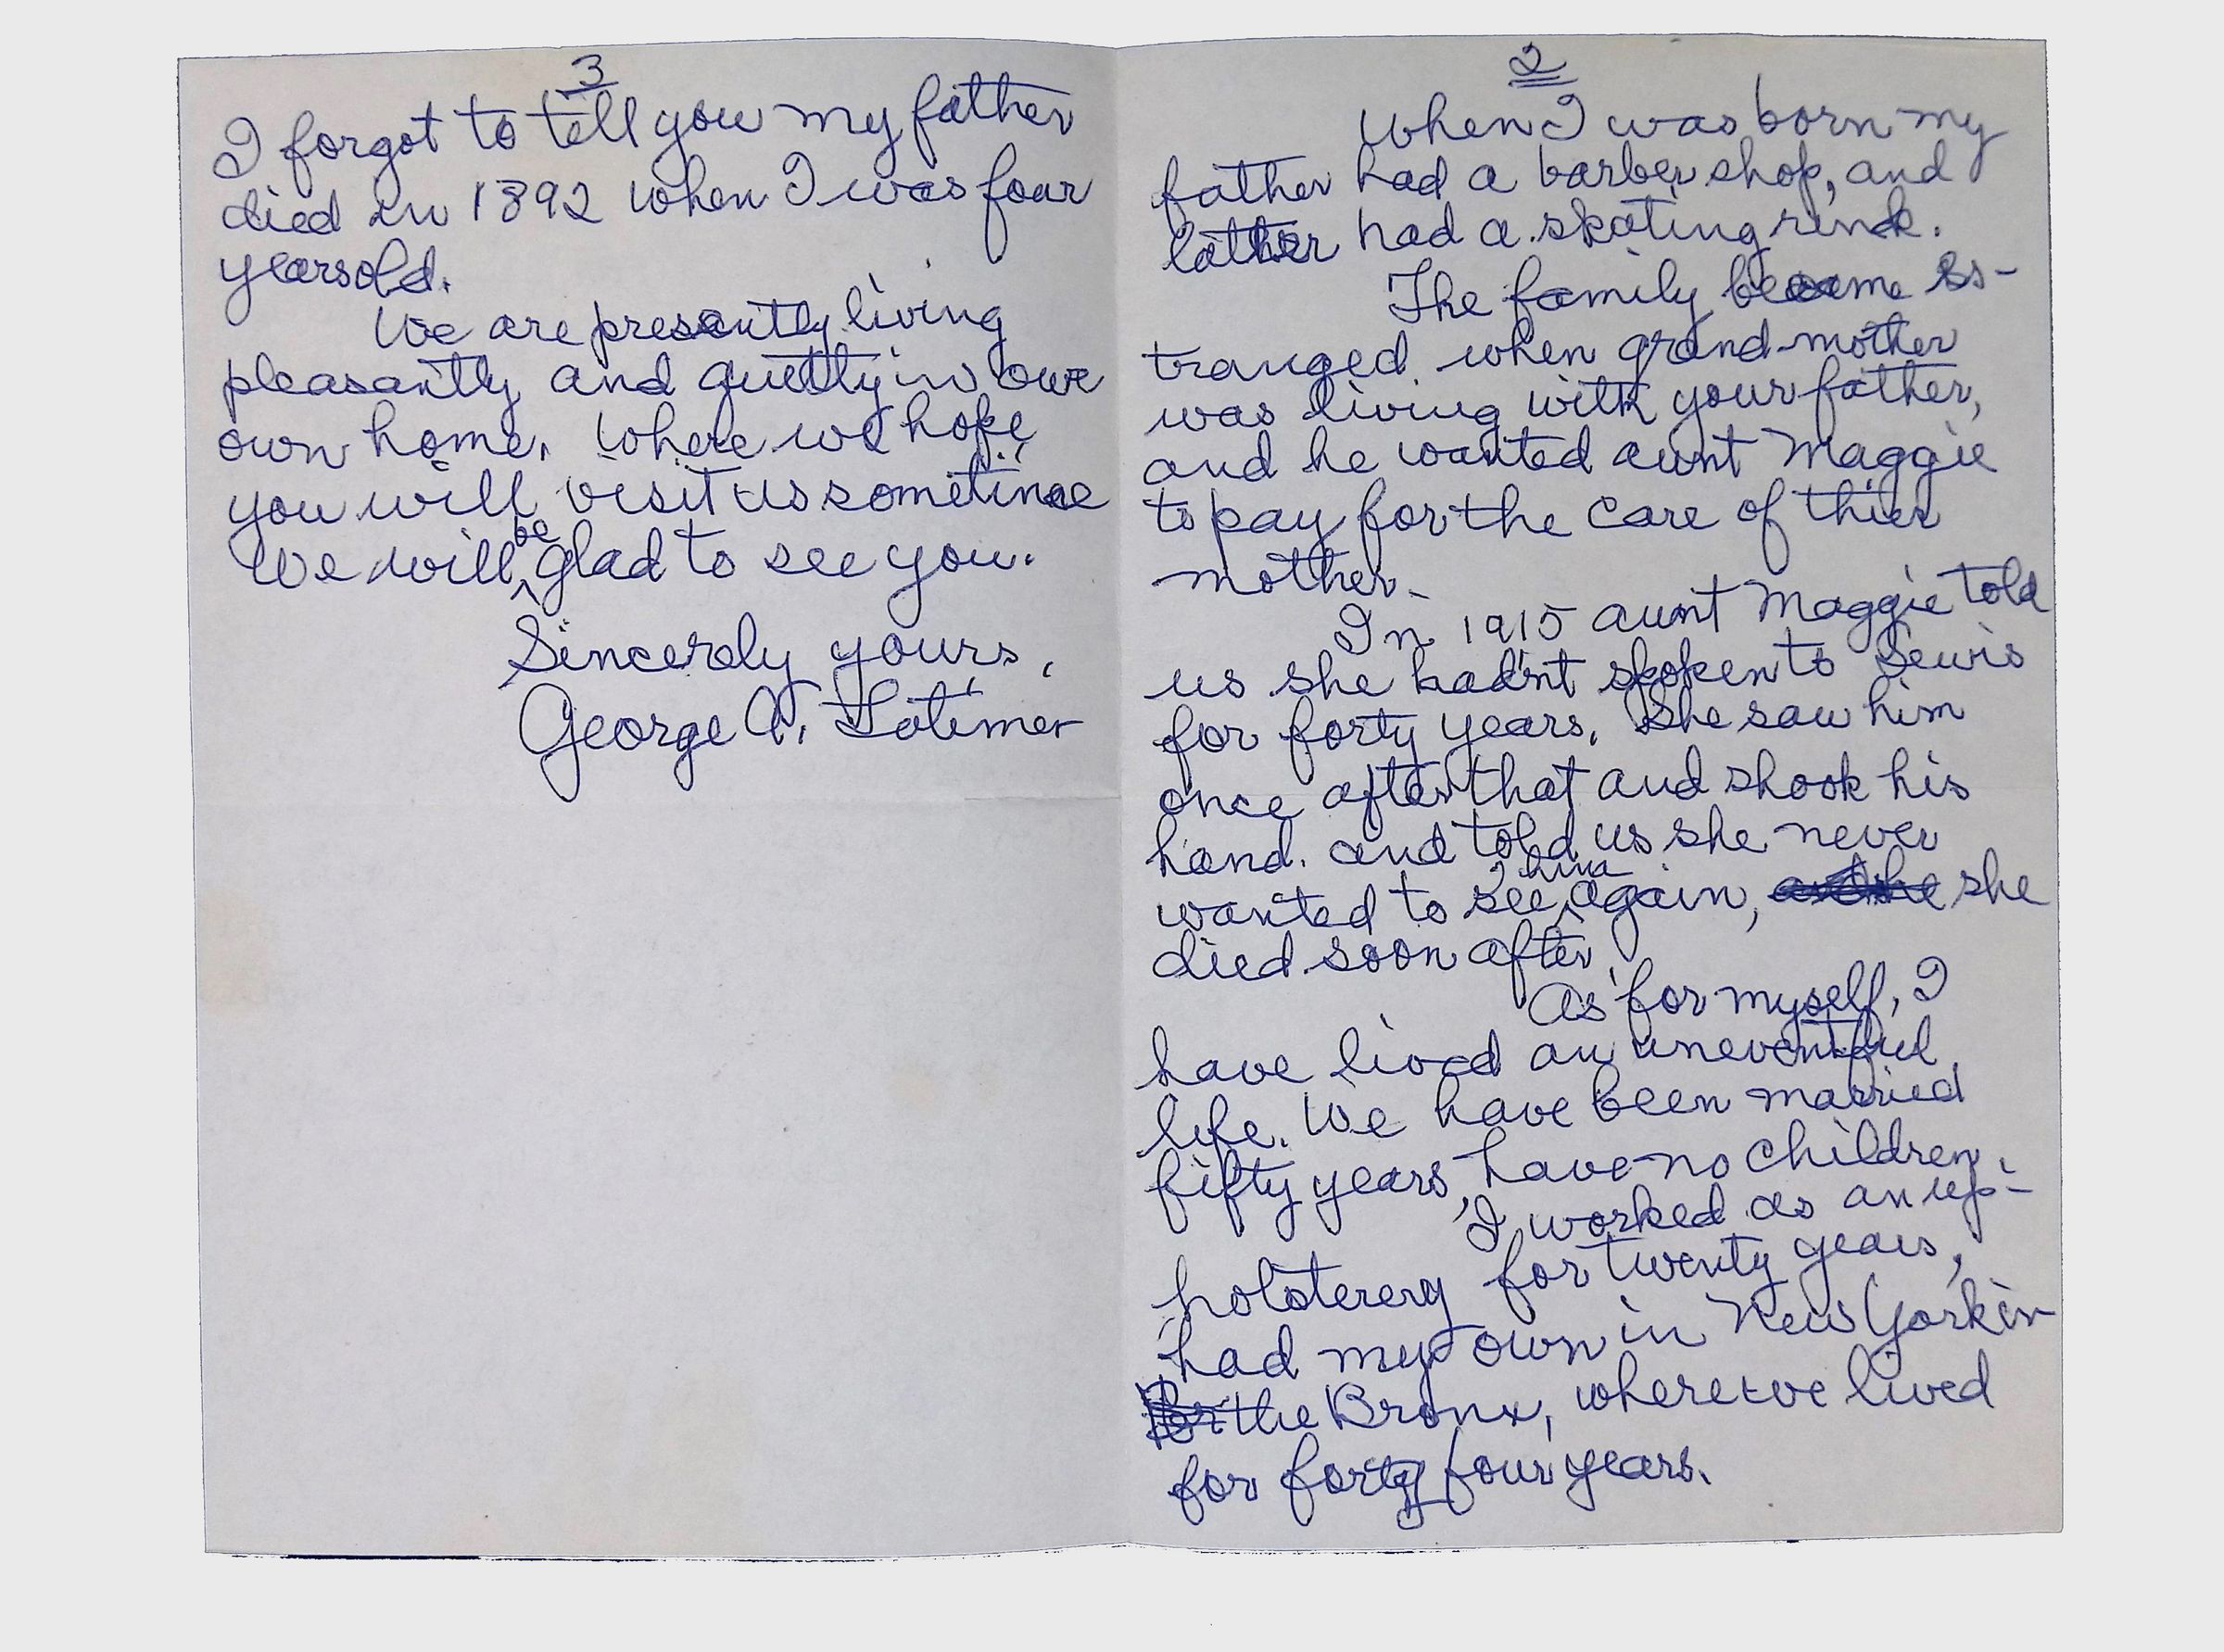 2
When I was born my
father had a barber shop, and
latter had a skating rink.
The family became es-
tranged when grand-mother
was living with your father,
and he wanted aunt Maggie
to pay for the care of thier
mother.
In 1915 aunt Maggie told
us she hadn't spoken to Lewis
for forty years. She saw him
once after that and shook his
hand. and told us she never
wanted to see him again, she
died soon after.
As for myself, I
have lived an uneventful
life. We have been married
fifty years, have no children.
I worked as an up-
holsterery for twenty years,
had my own in New York in
the Bronx, where we lived
for forty four years.
3
I forgot to tell you my father
died in 1892 when I was four
years old.
We are presantly living
pleasantly and quietly in our
own home. Where we hope
you will visit us sometime
We will be glad to see you.
Sincerely yours,
George A. Latimer